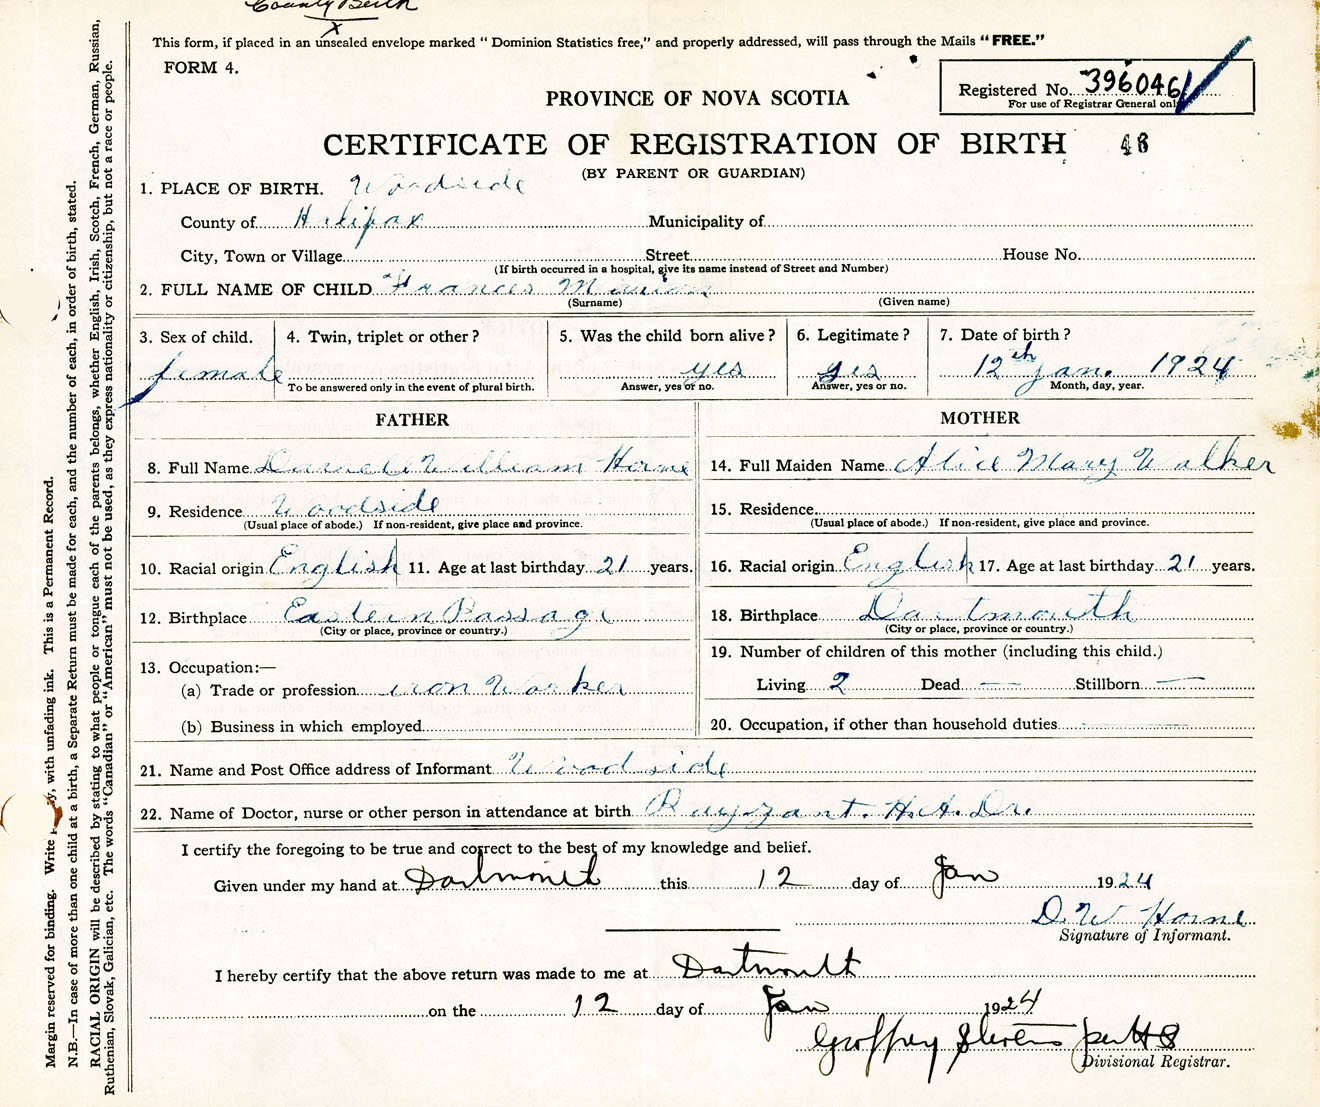 County Birth
X
This form, if placed in an unsealed envelope marked “ Dominion Statistics free,” and properly addressed, will pass through the Mails “FREE.”
FORM 4.
Registered No. 396046
For use of Registrar General only
PROVINCE OF NOVA SCOTIA
CERTIFICATE OF REGISTRATION OF BIRTH 48
(BY PARENT OR GUARDIAN)
1. PLACE OF BIRTH. Woodside
County of Halifax Municipality of
City, Town or Village Street House No.
(If birth occurred in a hospital, give its name instead of Street and Number)
2. FULL NAME OF CHILD Frances Marion
(Surname) (Given name)
3. Sex of child. 4. Twin, triplet or other ? 5. Was the child born alive ? 6. Legitimate ? 7. Date of birth ?
female yes yes 12th Jan. 1924
To be answered only in the event of plural birth. Answer, yes or no. Answer, yes or no. Month, day, year.
FATHER MOTHER
8. Full Name William Horne 14. Full Maiden Name Alice Mary Walker
9. Residence Woodside 15. Residence
(Usual place of abode.) If non-resident, give place and province. (Usual place of abode.) If non-resident, give place and province.
10. Racial origin English 11. Age at last birthday 21 years. 16. Racial origin English 17. Age at last birthday 21 years.
12. Birthplace Eastern Passage 18. Birthplace Dartmouth
(City or place, province or country.) (City or place, province or country.)
13. Occupation:— 19. Number of children of this mother (including this child.)
(a) Trade or profession iron Worker Living 2 Dead — Stillborn —
(b) Business in which employed 20. Occupation, if other than household duties
21. Name and Post Office address of Informant Woodside
22. Name of Doctor, nurse or other person in attendance at birth Payzant. H.A. Dr.
I certify the foregoing to be true and correct to the best of my knowledge and belief.
Given under my hand at Dartmouth this 12 day of Jan 1924
D. W Horne
Signature of Informant.
I hereby certify that the above return was made to me at Dartmouth
on the 12 day of Jan 1924
Geoffrey Stevens
Divisional Registrar.
Margin reserved for binding. Write with unfading ink. This is a Permanent Record.
N.B.—In case of more than one child at a birth, a Separate Return must be made for each, and the number of each, in order of birth, stated.
RACIAL ORIGIN will be described by stating to what people or tongue each of the parents belongs, whether English, Irish, Scotch, French, German, Russian,
Ruthenian, Slovak, Galician, etc. The words “Canadian” or “American” must not be used, as they express nationality or citizenship, but not a race or people.